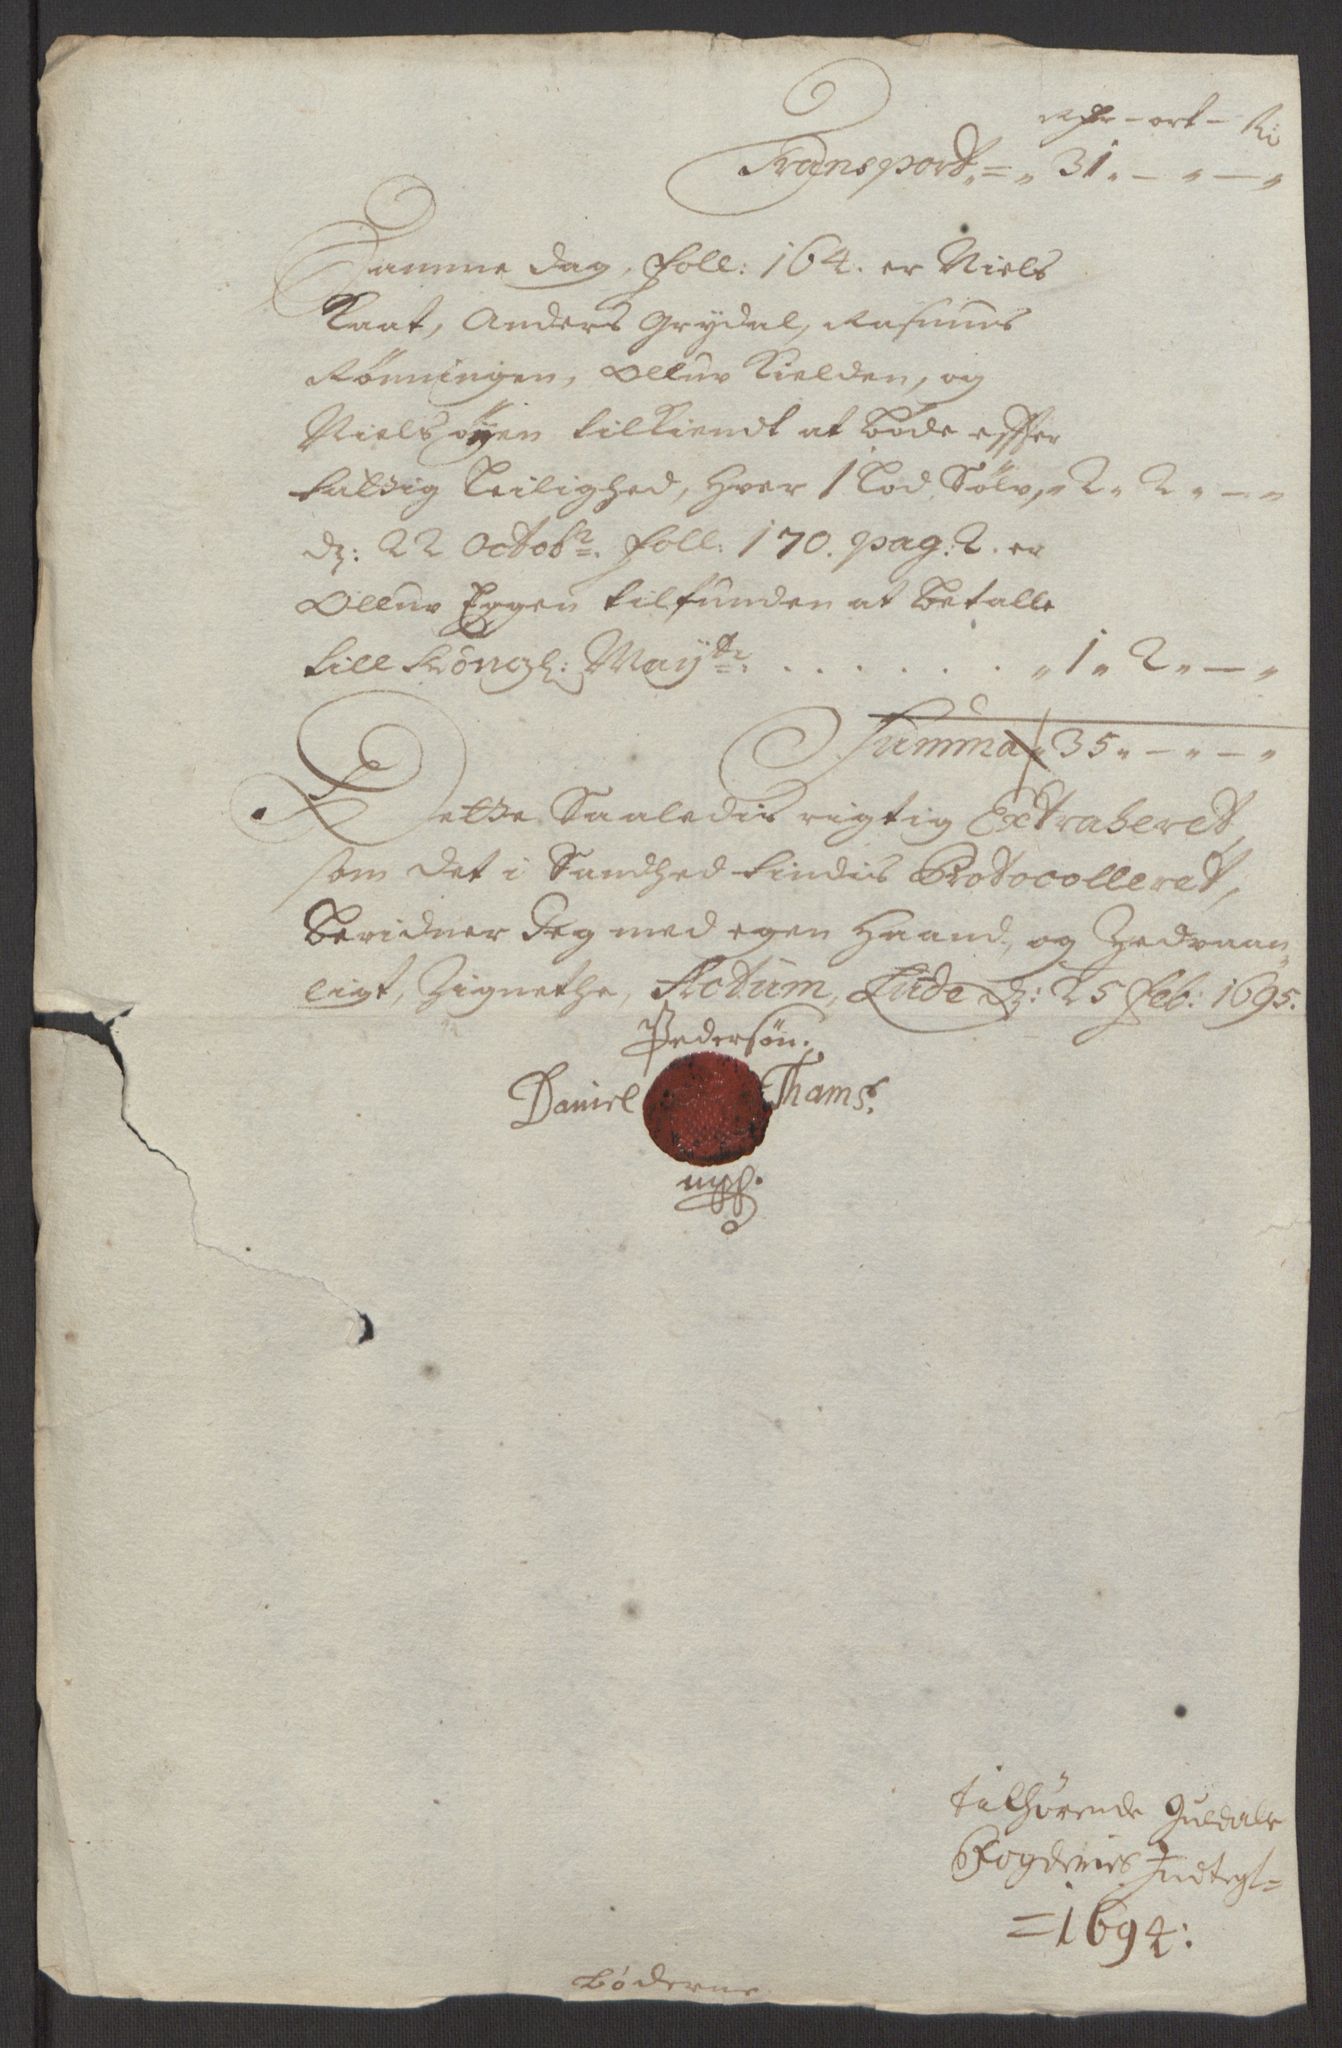 Rdr - ort - 
Transport 31 - -
Samme dag, foll: 164. er Niels
Kaat, Anders Grydal, Rasmus
Rønningen, Olluv Kielden, og
Niels øyen tilkiendt at bøde effter
fattig Leilighed, hver 1 Lod Sølv, 2 2 -
dz: 22 Octobr. foll: 170. pag: 2. er
Olluv Eggen tilfunden at betalle
till Kongl: Mayt: . . . . . . 1 2 -
Summa 35 - -
Dette Saaledis rigtig Extraheret,
som det i Sandhed findis Protocolleret,
bevidner Jeg med egen Haand, og Zedvaan,,
ligt, Zignethe, Actum, Lude dz: 25 Feb: 1695.
Pedersøn.
Daniel Thams.
mpp.
tilhørende Guldals
Fogderies Indtegt
= 1694:
Bøderne